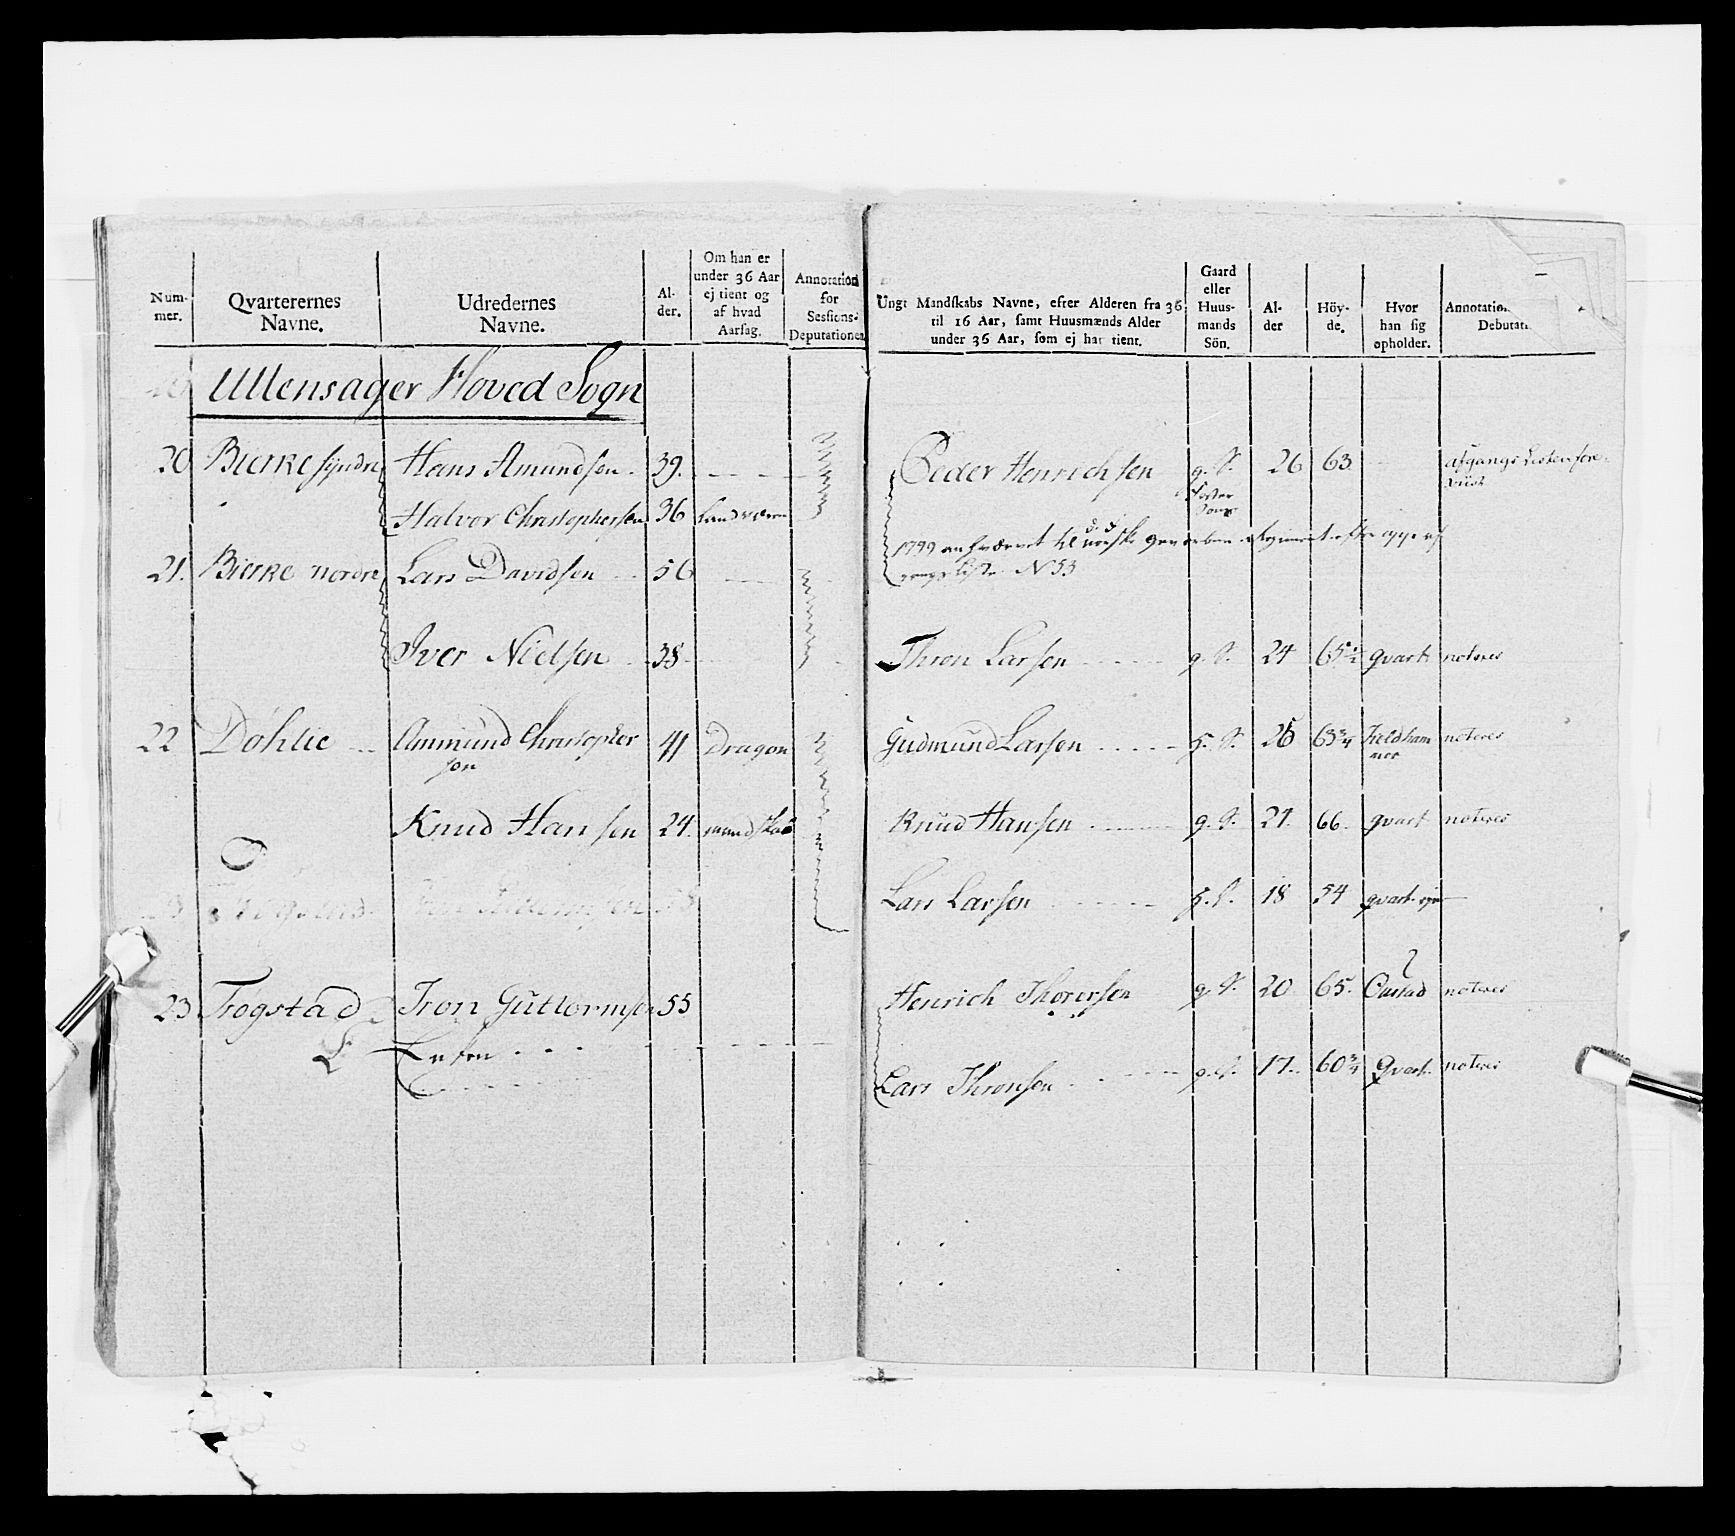 Num-
mer.
Qvarterernes
Navne.
Udredernes
Navne.
Al-
der.
Om han er
under 36 Aar
ej tient og
af hvad
Aarsag.
Annotation
for
Sessions-
Deputationen
Ullensager Hoved Sogn
20 Bierke syndre Hans Amundsen 39.
Halvor Christophersen 36 Landværn
21. Bierke nordre Lars Davidsen 56
Iver Nielsen 38
22 Döhlie Ammund Christopher 41 Dragon
sen
Knud Hansen 24. mandskab
23 Trogstad Tron Guttormsen 55
Ungt Mandskabs Navne, efter Alderen fra 36
til 16 Aar, samt Huusmænds Alder
under 36 Aar, som ej har tient.
Gaard
eller
Huus-
mands
Sön.
Al-
der
Höy-
de.
Hvor
han sig
opholder.
Annotation
Debutat
Peder Henrichsen g. S. 26 63 afgangs Listen fore-
Foster viist
Sönn
1799 til norske
N 53
Thron Larsen g. S. 24 65 1/2 qvart noteres
Gudmund Larsen h. S. 26 63 3/4 Kieldham noteres
mer
Knud Hansen g. S. 21. 66. qvart noteres
Lars Larsen h. S. 18 54 qvart
Henrich Thorersen g. S. 20 65. noteres
Lars Thronsen g. S. 17. 60 3/4 Qvart. noteres